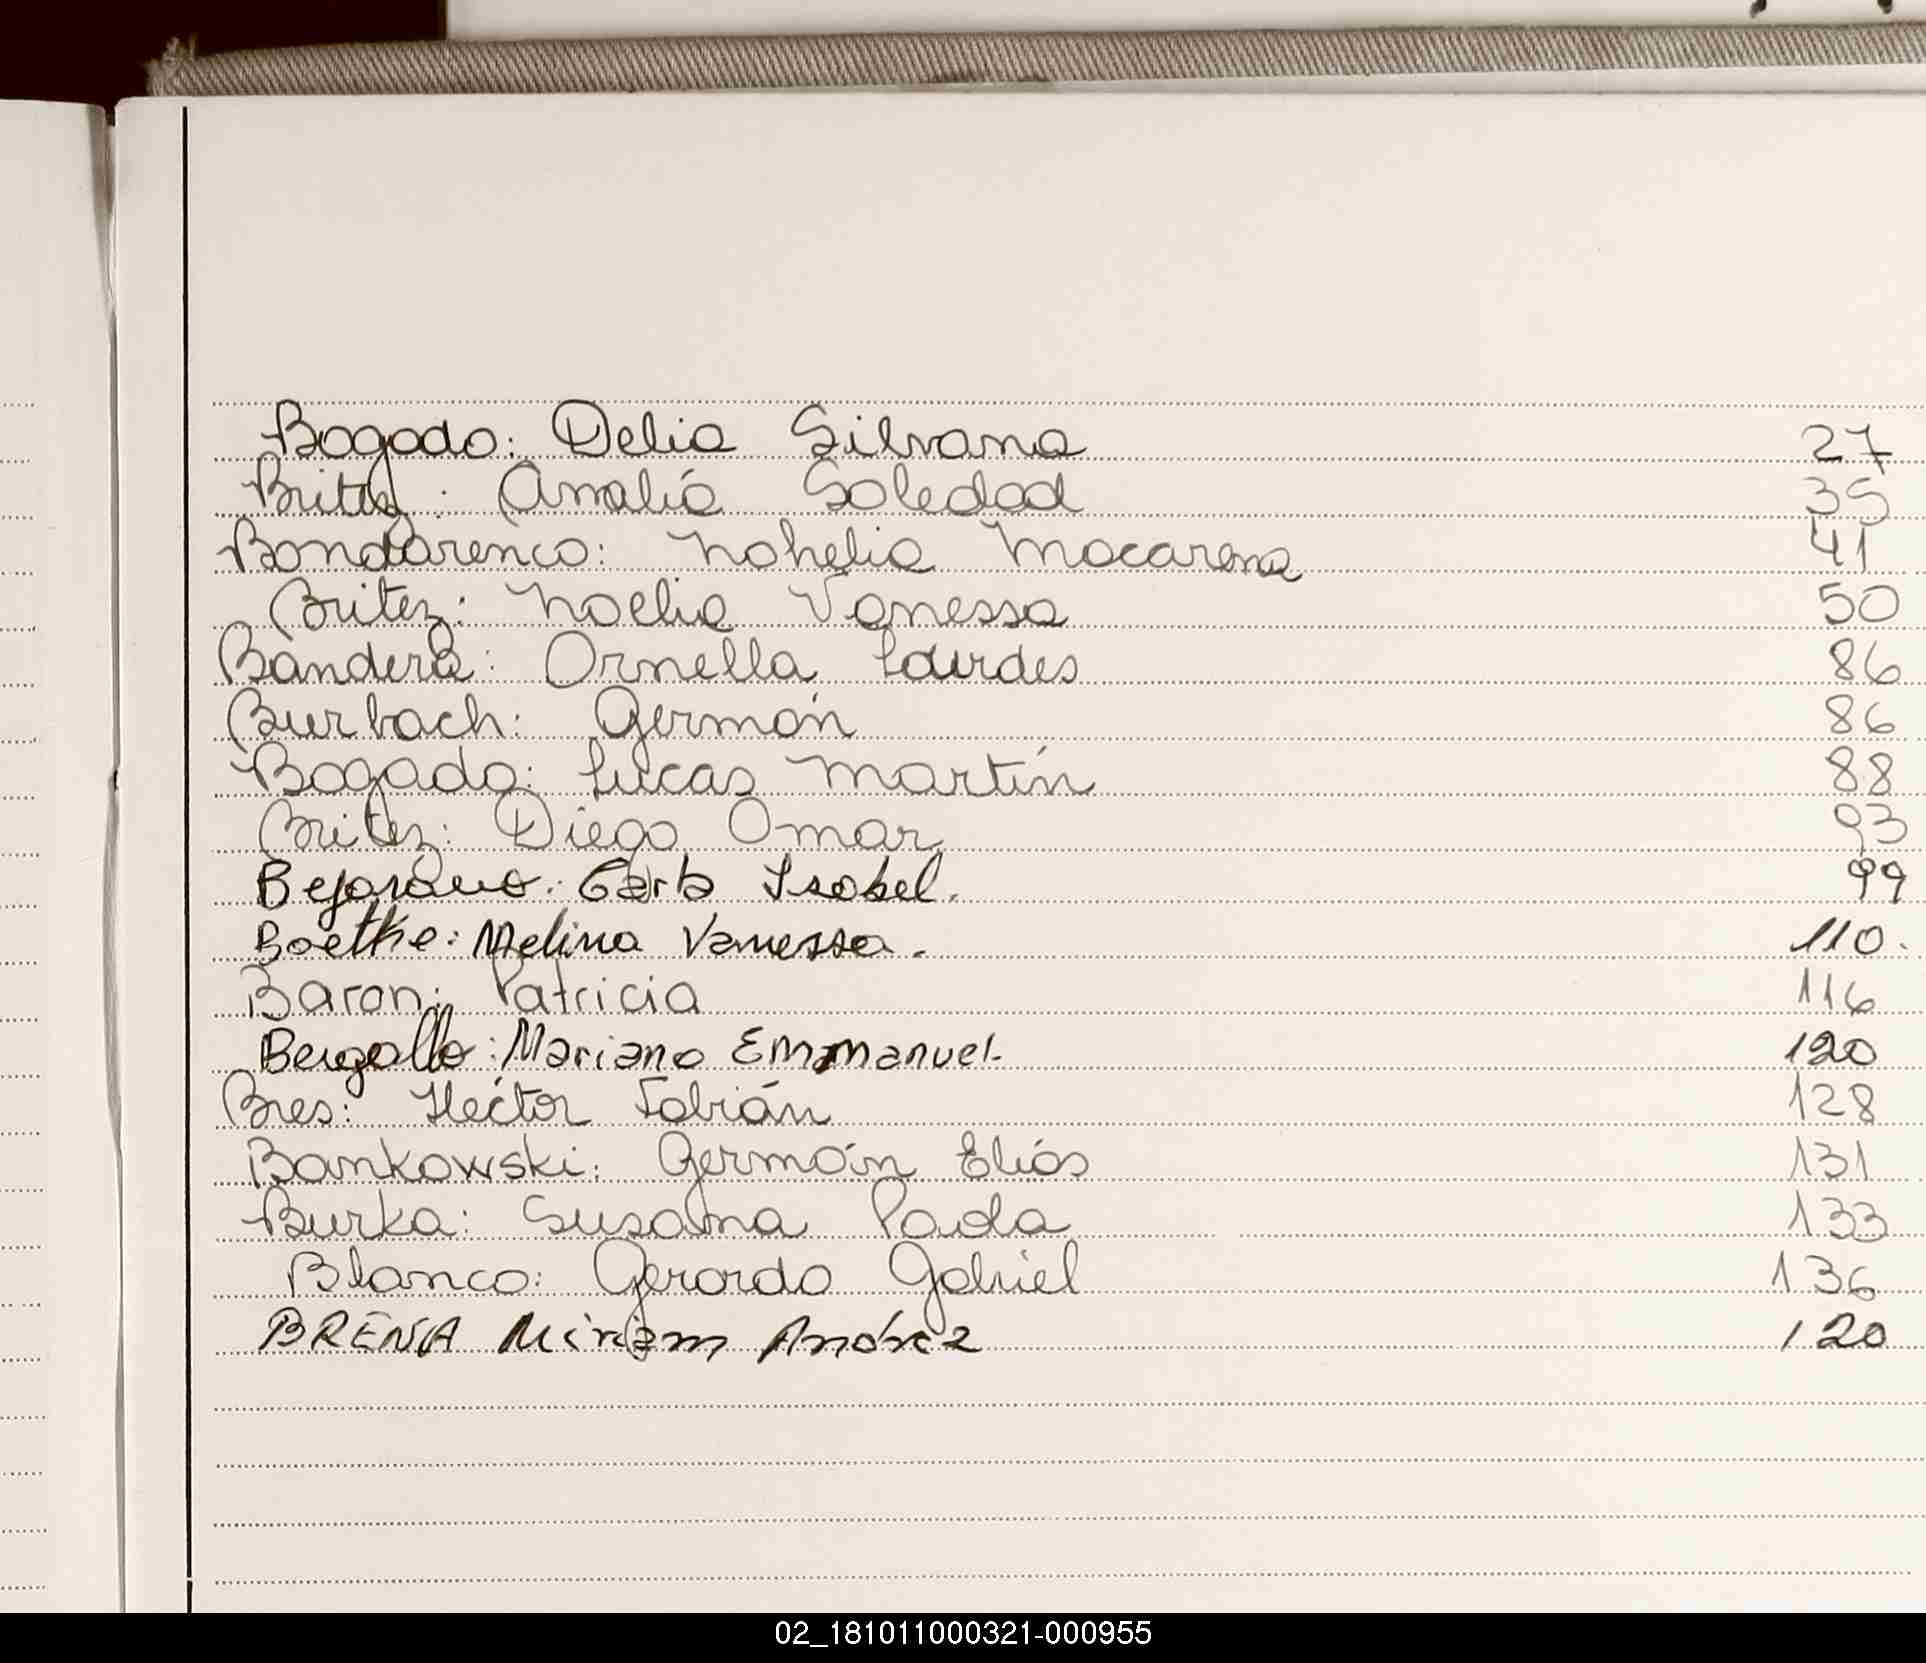 Bogado: Delia Silvana 27
Britez: Analía Soledad 35
Bondarenco: Nohelia Macarena 41
Britez: Noelia Vanessa 50
Bandera: Ornella Lourdes 86
Burbach: Germán 86
Bogado: Lucas Martín 88
Britez: Diego Omar 93
Bejarano: Carla Isabel. 99
Boetke: Melina Vanessa. 110.
Baron: Patricia 116
Bergallo: Mariano Emmanuel 120
Bres: Héctor Fabián 128
Bankowski: Germán Elías 131
Burka: Susana Paola 133
Blanco: Gerardo Gabriel 136
BRENA Miriam Andrea 120
02_181011000321-000955